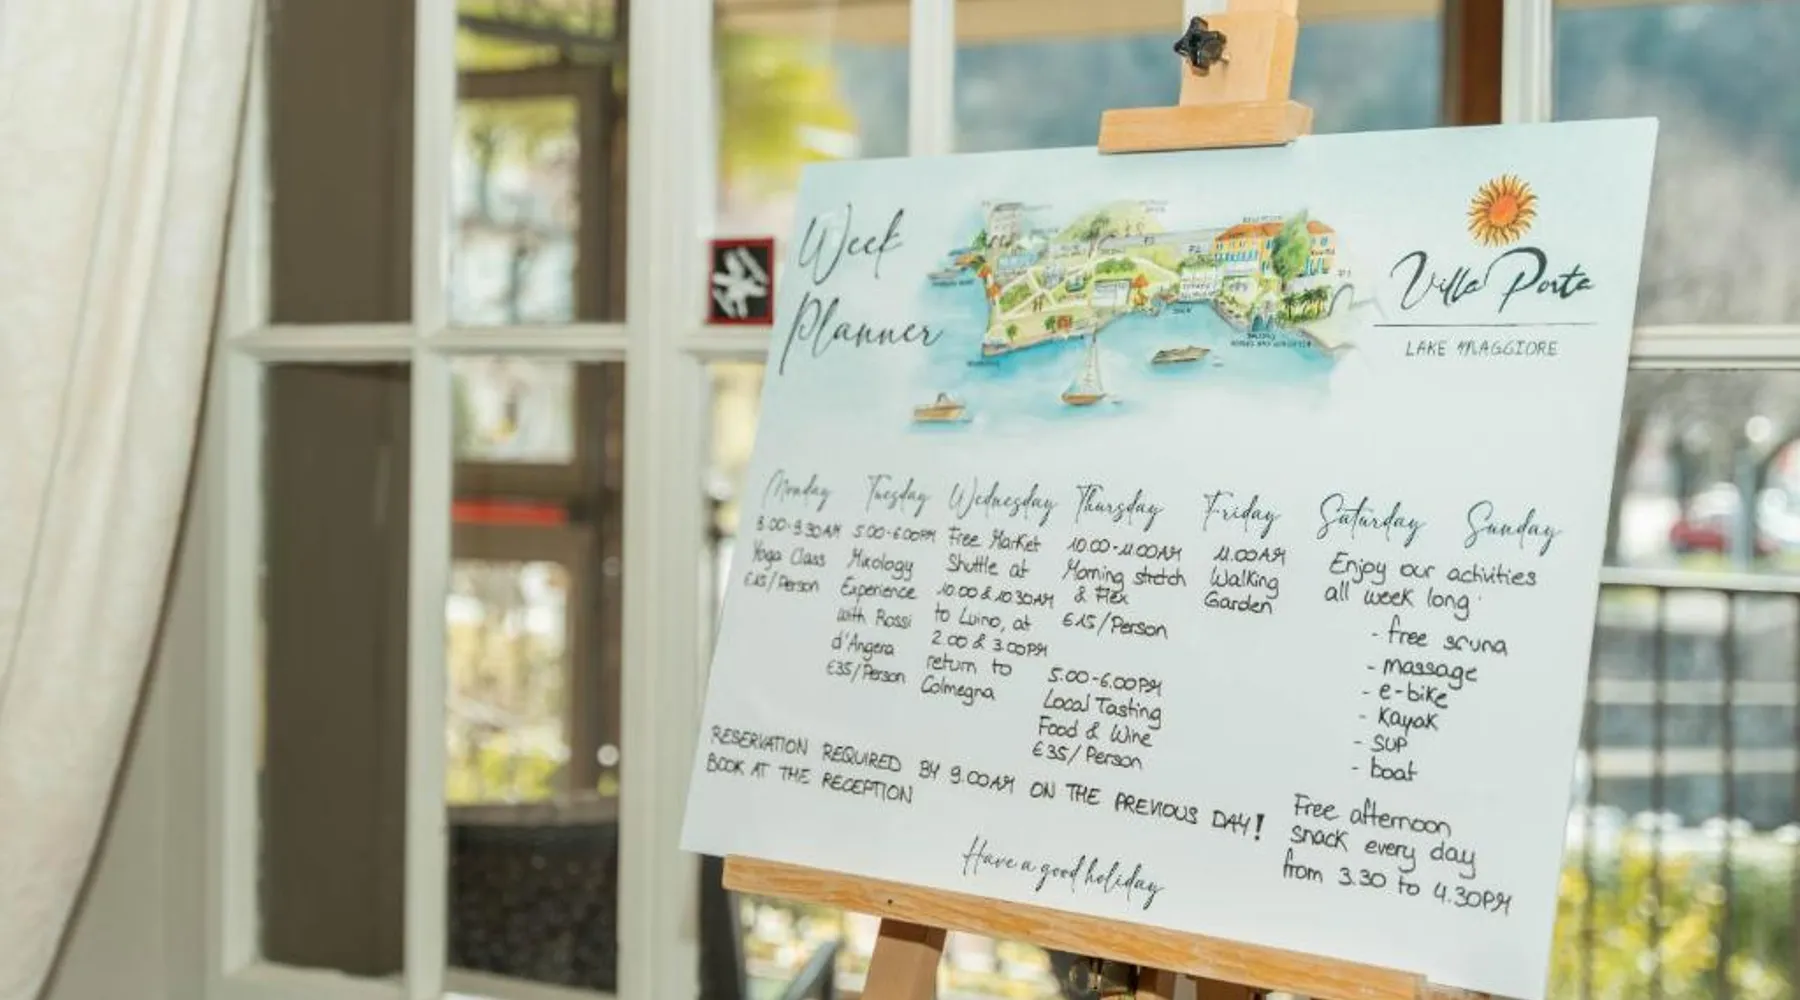 Week
Planner
Villa Porta
LAKE MAGGIORE
Monday
Yoga Class
€15/Person
Tuesday
5.00-6.00PM
Mixology
Experience
with Rossi
d'Angera
€35/Person
Wednesday
Free Market
Shuttle at
10.00 & 10.30AM
to Luino, at
2.00 & 3.00PM
return to
Colmegna
Thursday
10.00-11.00AM
Morning stretch
& Flex
€15/Person
5.00-6.00PM
Local Tasting
Food & Wine
€35/Person
Friday
11.00AM
Walking
Garden
Saturday Sunday
Enjoy our activities
all week long
- free sauna
- massage
- e-bike
- Kayak
- SUP
- boat
Free afternoon
snack every day
from 3.30 to 4.30PM
RESERVATION REQUIRED BY 9.00AM ON THE PREVIOUS DAY!
BOOK AT THE RECEPTION
Have a good holiday